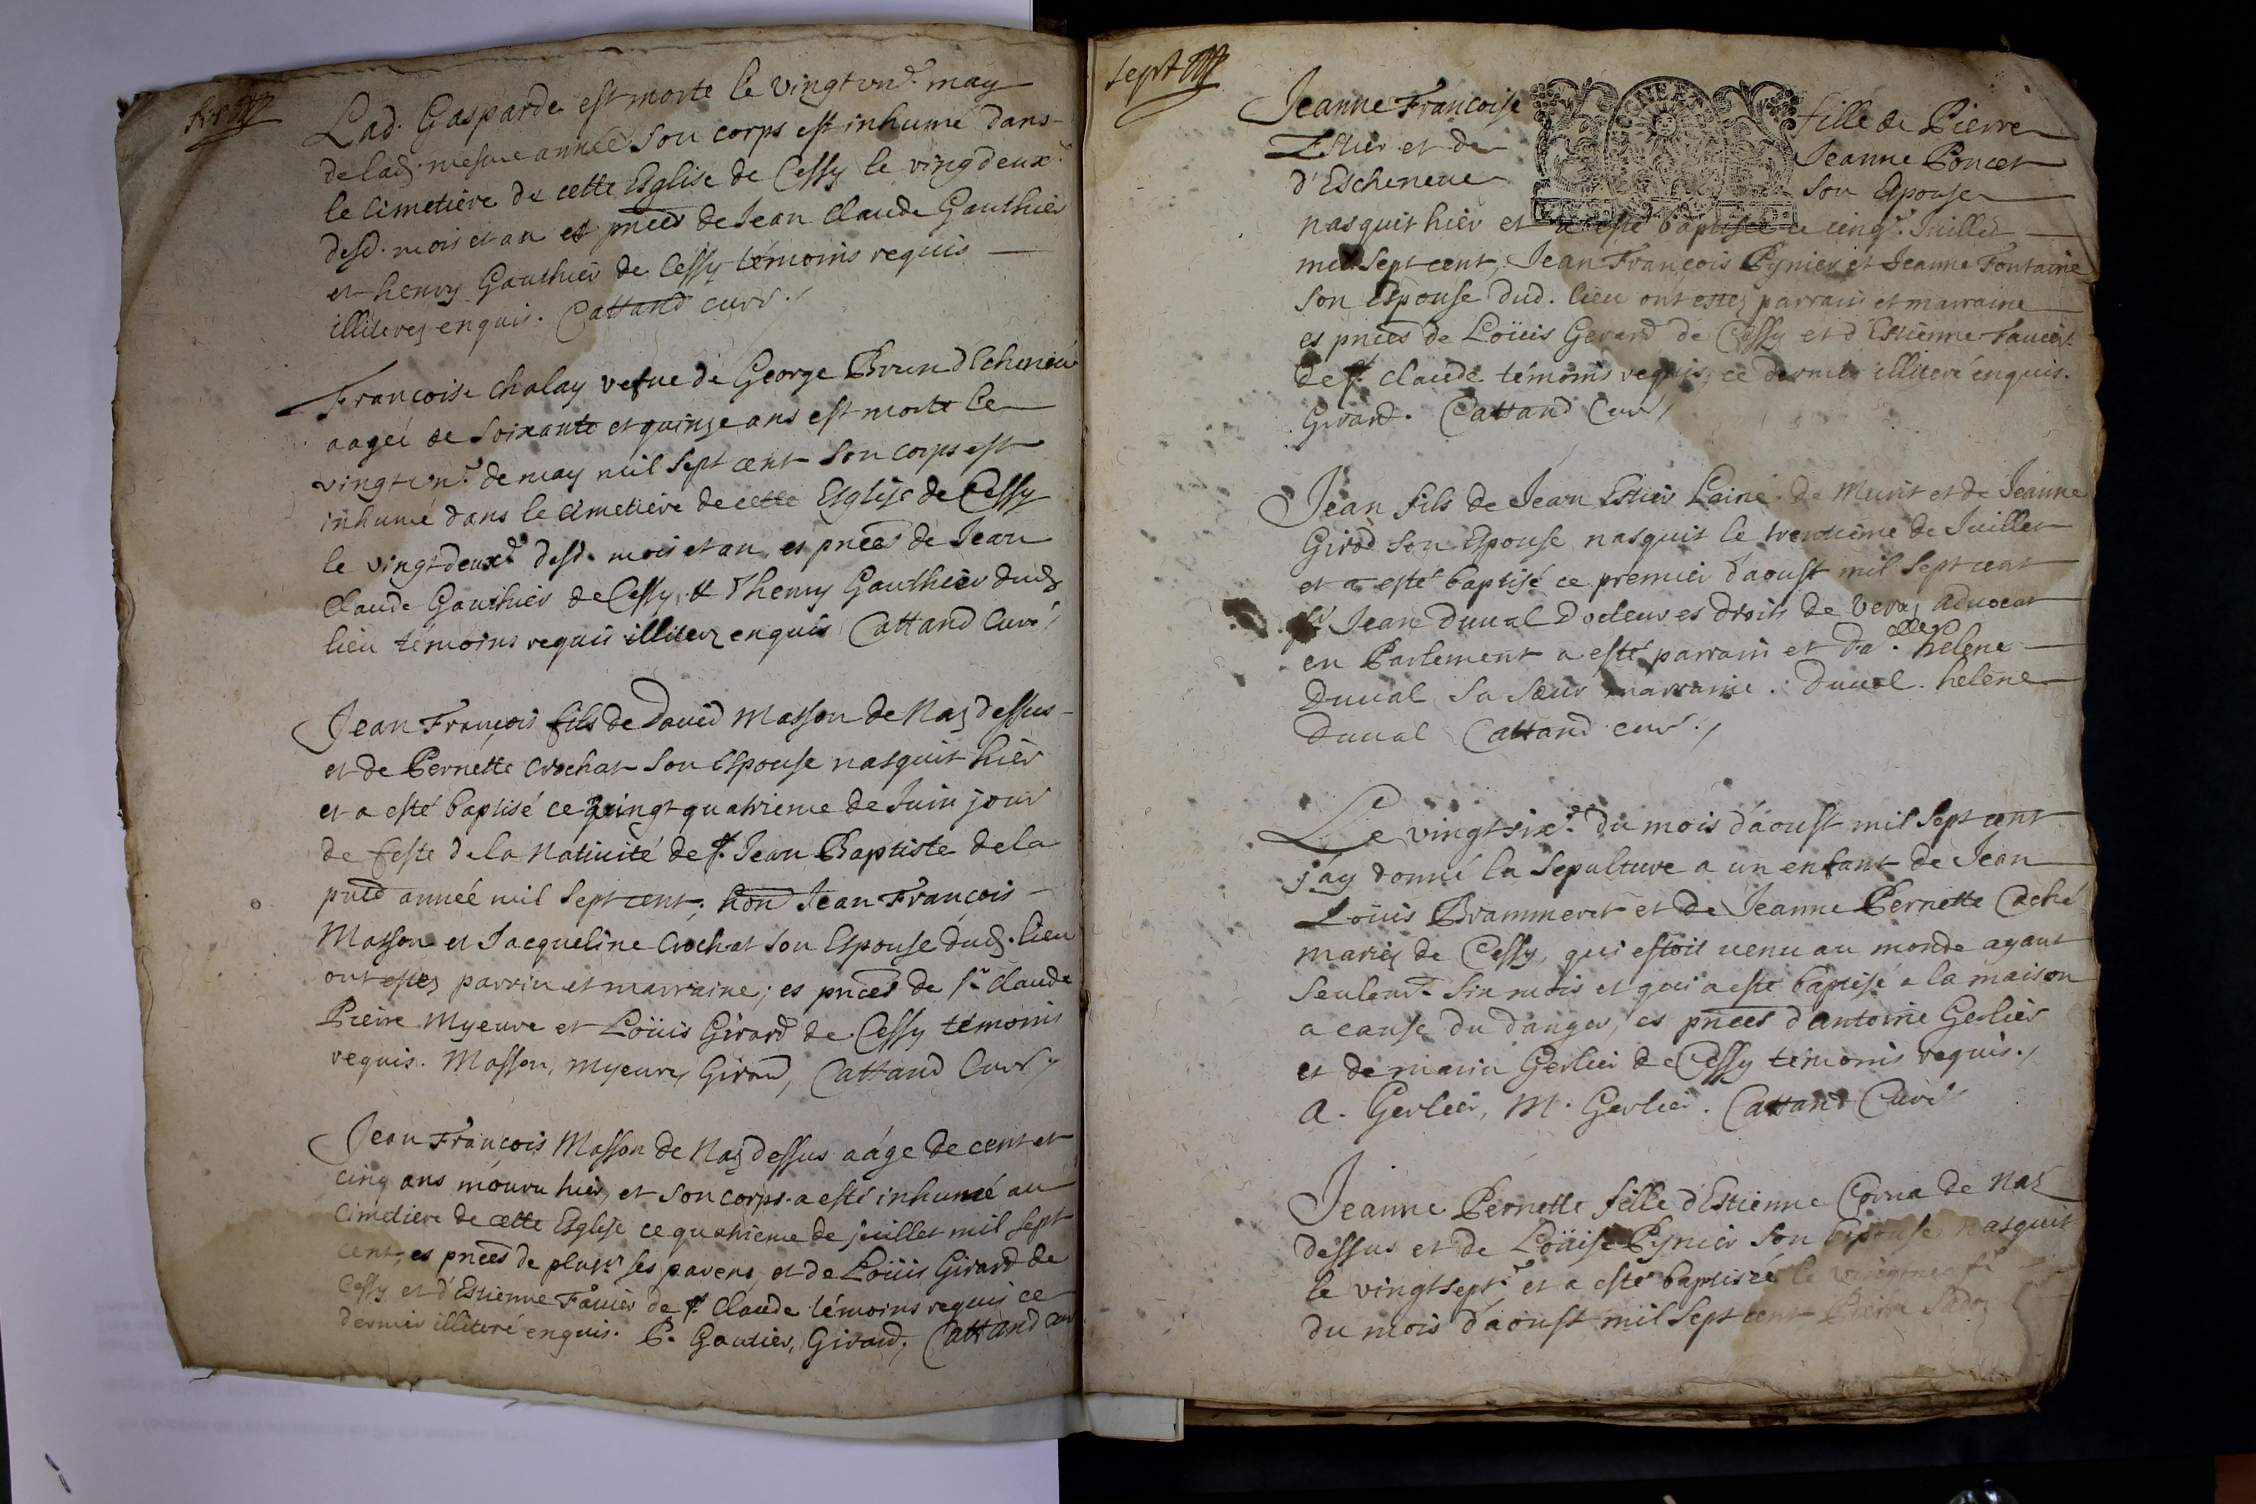 Lad. Gasparde est morte le vingt un.e may
de lad. mesme année son corps est inhumé dans
le cimetière de cette Esglise de Cessy le vingdeux.e
desd. mois et an es pnces de Jean Claude Gauthier
et henry Gauthier de Cessy témoins requis
illiterez enquis. Cattand curé
Francoise Chalay vefue de George Brun d'Echeneue
aageé de soixante et quinze ans est morte le
vingt un.e de may mil sept cent son corps est
inhumé dans le cimetière de cette Esglise de Cessy
le vingtdeux.e desd. mois et an es pnces de Jean
Claude Gauthier de Cessy, & d'henry Gauthier dud.
lieu témoins requis illiterez enquis Cattand Curé
Jean François fils de David Masson de Naz dessus
et de Pernette Crochat son Espouse nasquit hier
et a esté baptisé ce vingt quatrieme de Juin jour
de feste de la Natiuité de st. Jean Baptiste de la
pnte année mil sept cent; hon Jean François
Masson et Jacqueline Crochat son Espouse dud. lieu
ont estez parrin et marraine; es pnces de sr. Claude
Pierre Myeuvre et Loüis Girard de Cessy témoins
requis. Masson, Myeuvre, Girard, Cattand Curé
Jean François Masson de Naz dessus aáge de cent et
cinq ans mouru hier, et son corps a esté inhumé au
Cimetière de cette Esglise ce quatrieme de juillet mil sept
cent, es pnces de plusrs ses parens, et de Loüis Girard de
Cessy et d'Estienne Fauier de st. Claude témoins requis ce
dernier illiteré enquis. P. Gautier, Girard, Cattand curé
sept
Jeanne Francoise fille de Pierre
Estier et de Jeanne Poncet
d'Escheneue son Epouse
nasquit hier et a esté baptisée ce cinq.e Juillet
mil sept cent, Jean François Pynier et Jeanne Fontaine
son Espouse dud. lieu ont estez parrain et marraine
es pnces de Loüis Gerard de Cessy et d'Estienne Fauier
de st. Claude témoins requis, ce dernier illiteré enquis.
Girard. Cattand Curé
Jean fils de Jean Estier Lainé de Meurit et de Jeanne
Girod son Espouse nasquit le trentième de Juillet
et a esté baptisé ce premier d'aoust mil sept cent
sr Jean Duual Docteur es droits de Veraz aduocat
en Parlement a esté parrain et Da.elle helene
Duual sa sœur marraine. Duual. helene
Duual Cattand curé
Le vingtsix.e du mois d'aoust mil sept cent
j'ay donné la sepulture a un enfant de Jean
Loüis Brammeret et de Jeanne Pernette Caché
mariez de Cessy, qui estoit uenu au monde ayant
seulemt six mois et qui a esté baptisé a la maison
a cause du danger, es pnces d'antoine Gerlier
et de marin Gerlier de Cessy témoins requis.
A. Gerlier, M. Gerlier. Cattand Curé
Jeanne Pernette fille d'Estienne Corna de Naz
dessus et de Loüise Pynier son Espouse nasquit
le vingtsept.e et a esté baptisée le vingtneuf.e
du mois d'aoust mil sept cent Pierre